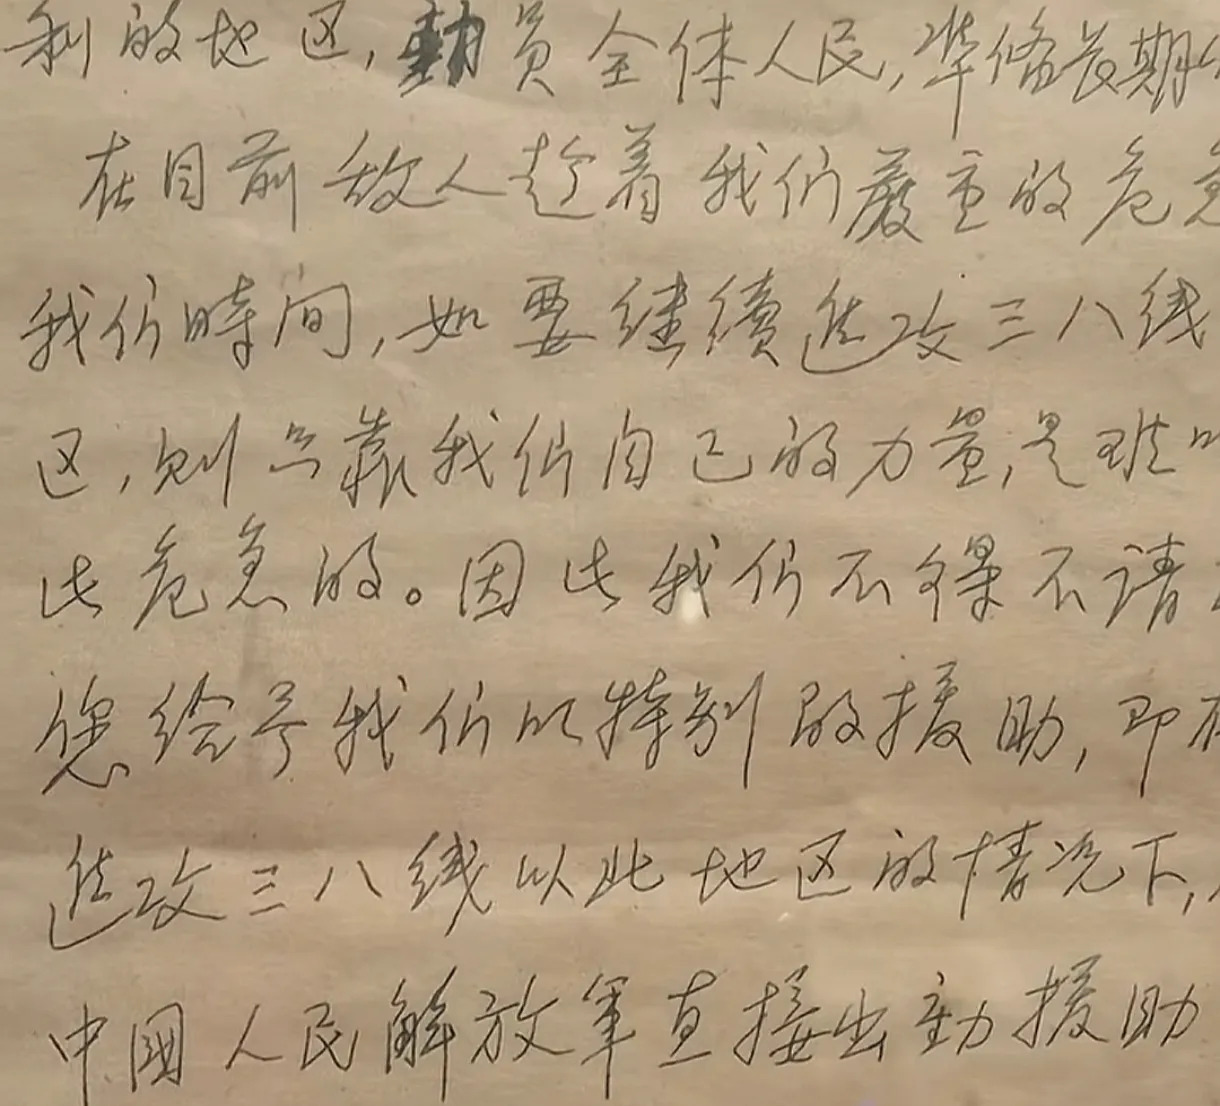 利的地区,動員全体人民,準俻长期
在目前敌人趁着我们嚴重的危急
我们時间,如要继续进攻三八线
区,则只靠我们自己的力量,是难
此危急的。因此我们不得不请
您给予我们以特别的援助,即在
进攻三八线以北地区的情况下,
中國人民解放军直接出動援助